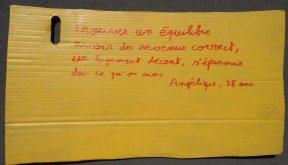 Trouver un équilibre
Avoir des revenus correct,
un logement décent, s'épanouir
dans ce qu'on aime
Angélique, 38 ans